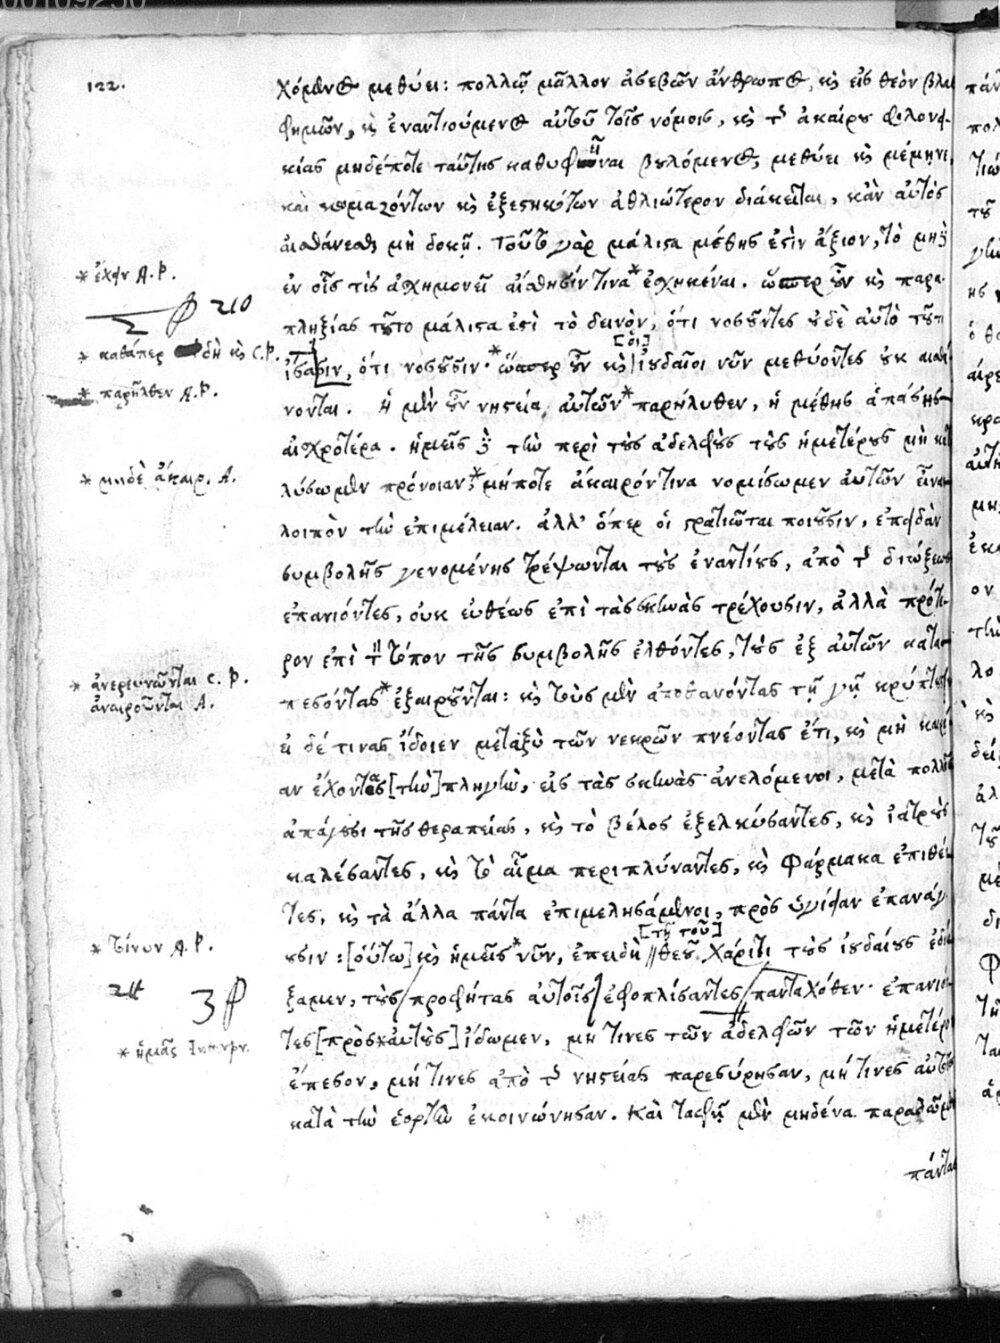 00109250
122.
χόμενος μεθύει: πολλῷ μᾶλλον ἀσεβῶν ἄνθρωπος, κỳ εἰς θεὸν βλα
φημῶν, κỳ ἐναντιούμενος αὐτοῦ τοῖς νόμοις, κỳ τ̃ ἀκαίρου φιλονει-
κίας μηδέποτε ταύτης καθυφεῖναι βουλόμενος, μεθύει κỳ μέμηνε,
καὶ κωμαζόντων κỳ ἐξεστηκότων ἀθλιώτερον διάκειται, κἂν αὐτὸς
αἰσθάνεσθαι μὴ δοκῇ. Τοῦτο γὰρ μάλιστα μέθης ἐστὶν ἄξιον, τὸ μηδ
* ἔχειν A. P.
ἐν οἷς τὶς ἀσχημονεῖ αἴσθησίν τινα * ἐσχηκέναι. ὥσπερ οὖν κỳ παρα-
2 P 210
πληξίας τοῦτο μάλιστα ἐστὶ τὸ δεινὸν, ὅτι νοσοῦντες οὐδὲ αὐτὸ τοῦτο
[οἱ]
* καθάπερ δὴ κỳ C. P.
ἴσασιν, ὅτι νοσοῦσιν· * ὥσπερ οὖν κỳ ἰουδαῖοι νῦν μεθύοντες οὐκ αἰσθά
* παρῆλθεν A. P.
νονται. Ἡ μὲν οὖν νηστεία αὐτῶν * παρήλυθεν, ἡ μέθης ἁπάσης
αἰσχροτέρα. ἡμεῖς δὲ τὴν περὶ τοὺς ἀδελφοὺς τοὺς ἡμετέρους μὴ κα
* μηδὲ ἄκαιρ. A.
λύσωμεν πρόνοιαν, * μήποτε ἄκαιρόν τινα νομίσωμεν αὐτῶν εἶναι
λοιπὸν τὴν ἐπιμέλειαν. ἀλλ' ὅπερ οἱ στρατιῶται ποιοῦσιν, ἐπειδὰν
συμβολῆς γενομένης τρέψωνται τοὺς ἐναντίους, ἀπὸ τ̃ διώξεως
ἐπανιόντες, οὐκ εὐθέως ἐπὶ τὰς σκηνὰς τρέχουσιν, ἀλλὰ πρότε-
ρον ἐπὶ τὸν τόπον τῆς συμβολῆς ἐλθόντες, τοὺς ἐξ αὐτῶν κατα-
* ἀνερευνῶνται C. P.
ἀναιροῦνται A.
πεσόντας * ἐξαιροῦνται: κỳ τοὺς μὲν ἀποθανόντας τῇ γῇ κρύπτουσιν
εἰ δέ τινας ἴδοιεν μεταξὺ τῶν νεκρῶν πνέοντας ἔτι, κỳ μὴ καιρί
αν ἔχοντας [τὴν] πληγὴν, εἰς τὰς σκηνὰς ἀνελόμενοι, μετὰ πολλῆς
ἀπάγουσι τῆς θεραπείας, κỳ τὸ βέλος ἐξελκύσαντες, κỳ ἰατροὺς
καλέσαντες, κỳ τὸ αἷμα περιπλύναντες, κỳ φάρμακα ἐπιθέν
τες, κỳ τὰ ἄλλα πάντα ἐπιμελησάμενοι, πρὸς ὑγίειαν ἐπανάγ
[τῇ τοῦ]
* τίνων A. P.
ουσιν: [οὕτω] κỳ ἡμεῖς * νῦν, ἐπειδὴ // θεοῦ χάριτι τοὺς ἰουδαίους ἐδιώ
24 3 P
ξαμεν, τοὺς προφήτας αὐτοῖς ἐφοπλίσαντες πανταχόθεν· ἐπανιόν
* ἡμᾶς Interpr.
τες [πρὸς αὐτοὺς] ἴδωμεν, μή τινες τῶν ἀδελφῶν τῶν ἡμετέρων
ἔπεσον, μή τινες ἀπὸ τ̃ νηστείας παρεσύρησαν, μή τινες αὐτοῖς
κατὰ τὴν ἑορτὴν ἐκοινώνησαν. Καὶ ταφῇ μὲν μηδένα παραδῶμεν
πάντας